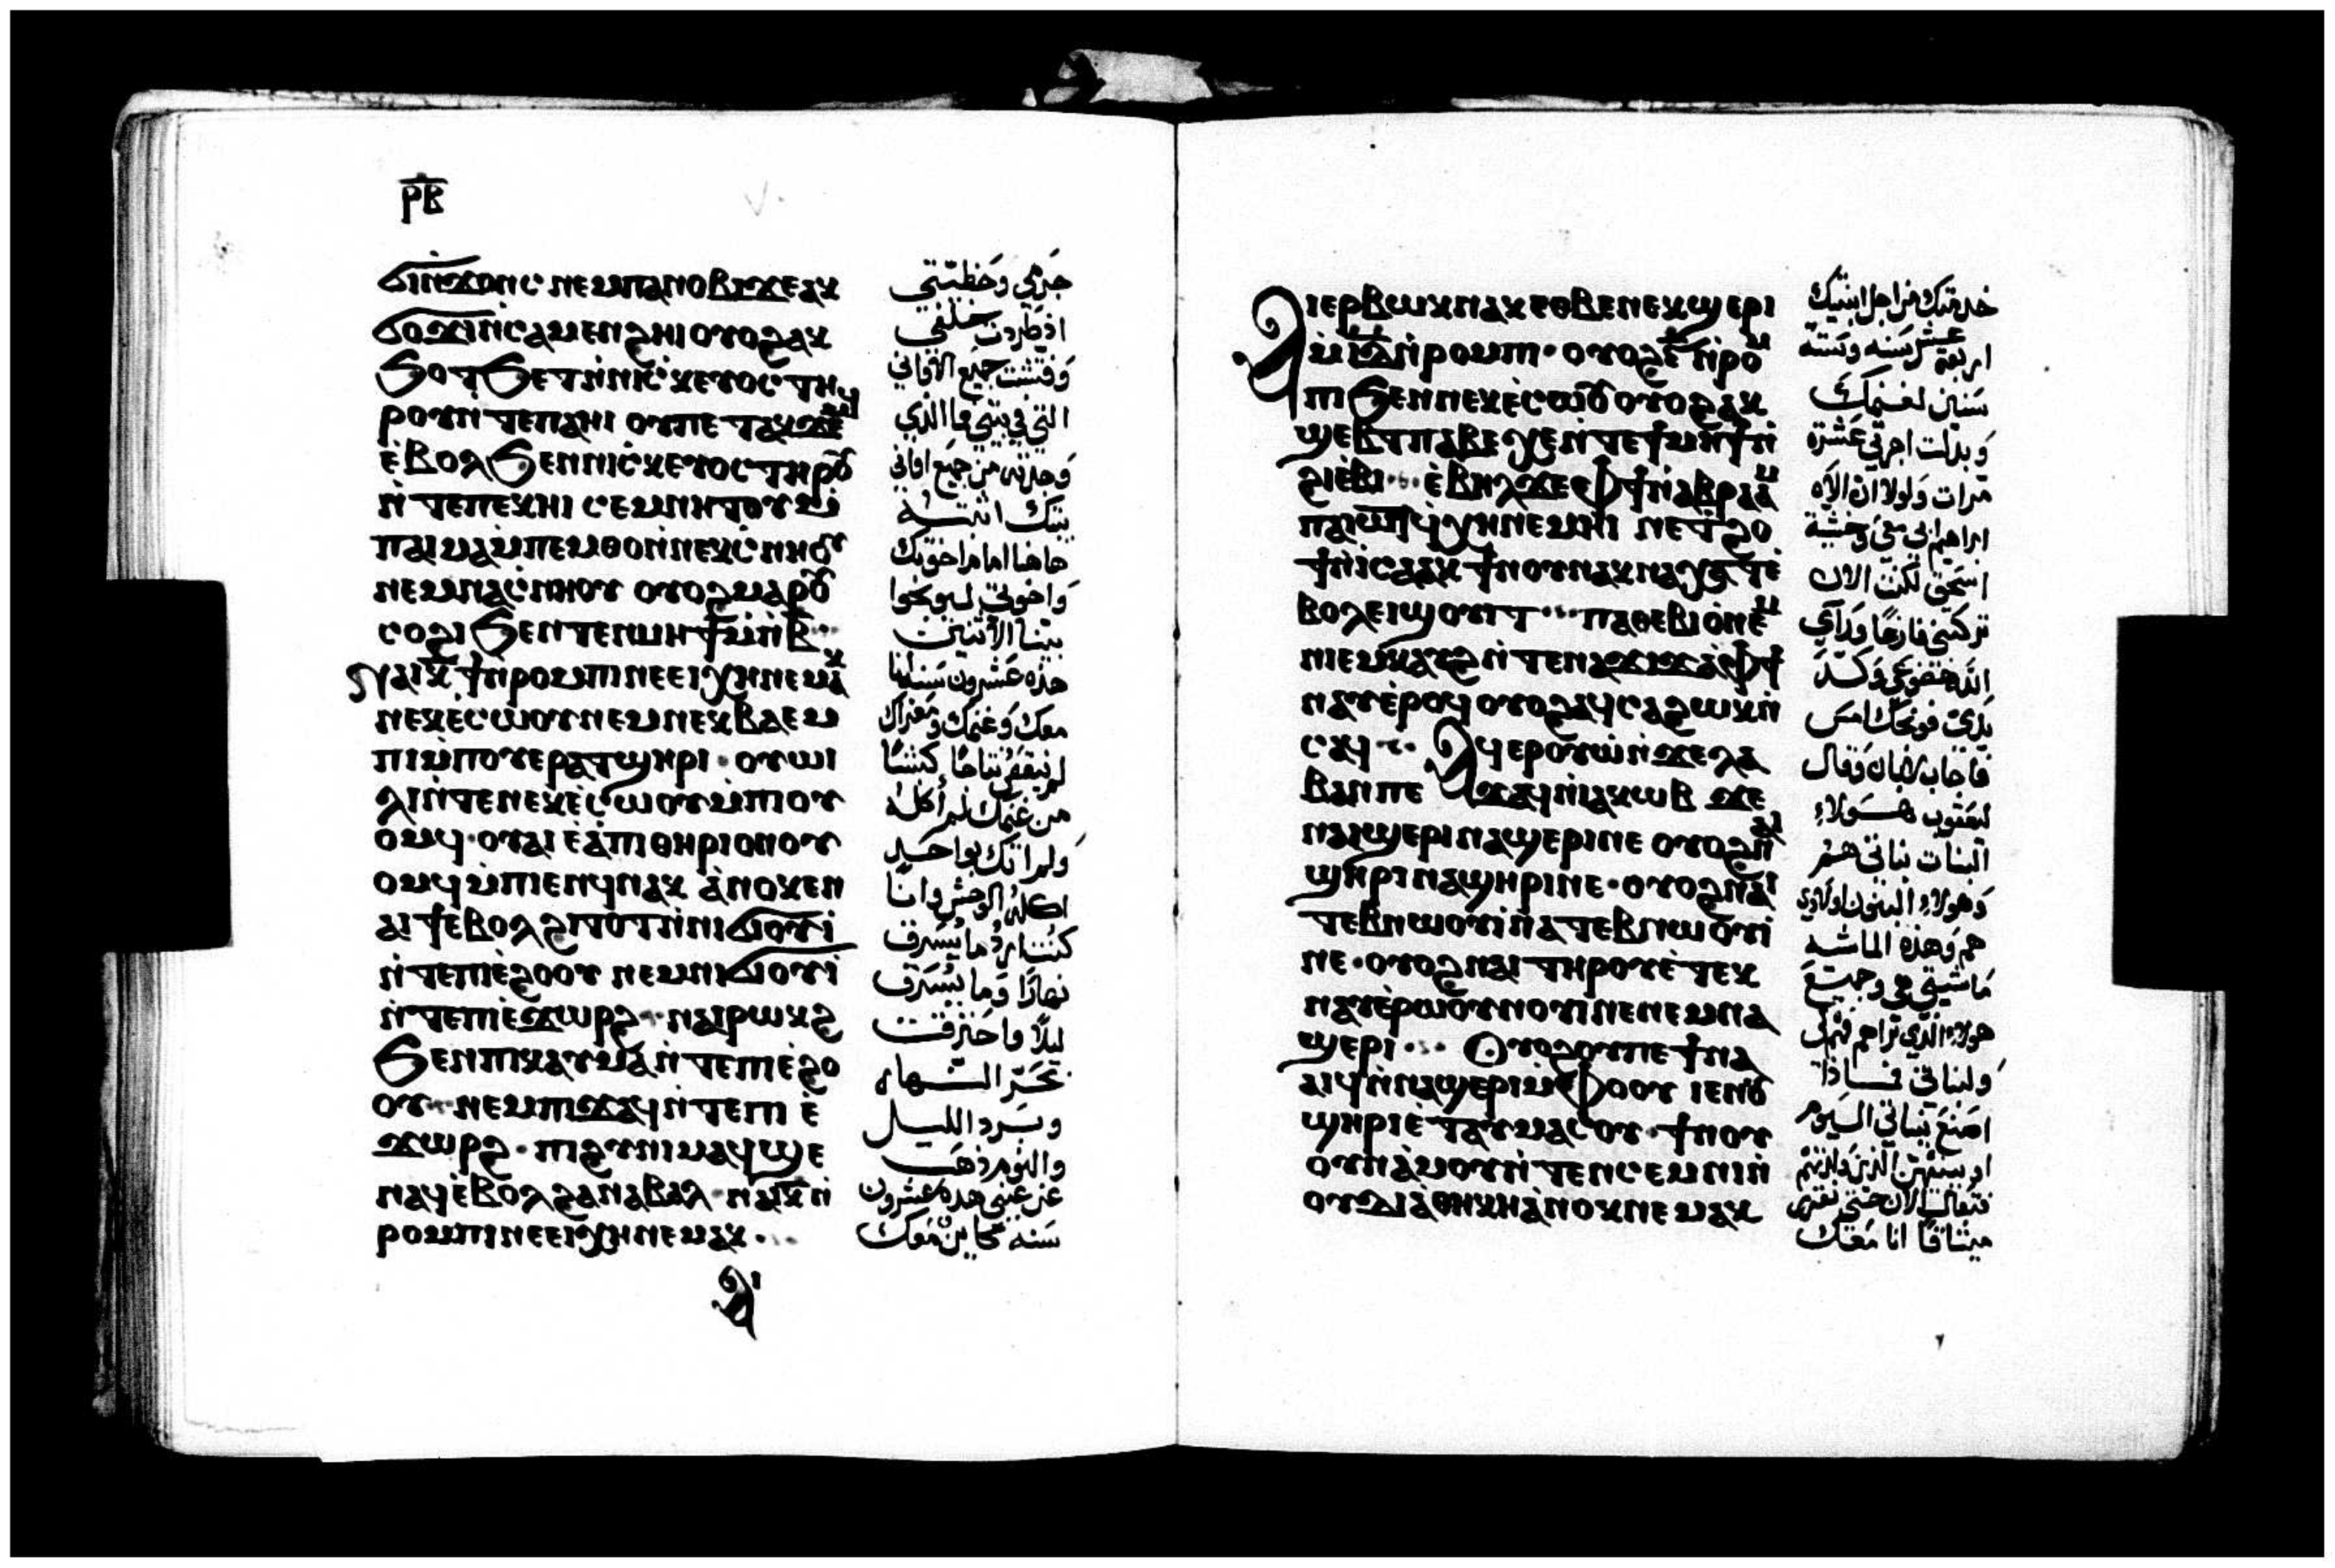 ⲣ̅ⲃ̅
ϭⲓⲛ̀ϫⲟⲛⲥ ⲛⲉⲙⲡⲁⲛⲟⲃⲓϫⲉⲁⲕ
ϭⲟϫⲓⲛ̀ⲥⲁⲙⲉⲛϩⲏⲓ ⲟⲩⲟϩⲁⲕ
ϧⲟⲧϧⲉⲧⲛ̀ⲛⲓⲥ̀ⲕⲉⲩⲟⲥⲧⲏ
ⲣⲟⲩⲛ̀ⲧⲉⲡⲁⲏⲓ ⲟⲩⲡⲉⲧⲁⲕϫⲉⲙϥ
ⲉ̀ⲃⲟⲗϧⲉⲛⲛⲓⲥ̀ⲕⲉⲩⲟⲥⲧⲏⲣⲟⲩ
ⲛ̀ⲧⲉⲡⲉⲕⲏⲓ ⲥⲉⲙⲛⲏⲧⲟⲩⲙ̀
ⲡⲁⲓⲙⲁⲙ̀ⲡⲉⲙⲑⲟⲛ̀ⲛⲉⲕⲥ̀ⲛⲏⲟⲩ
ⲛⲉⲙⲛⲁⲥ̀ⲛⲏⲟⲩ ⲟⲩⲟϩⲙⲁⲣⲟⲩ
ⲥⲟϩⲓϧⲉⲛⲧⲉⲛⲙⲏϯⲙ̀ⲡⲃ̅
ⲛⲁⲓⲕ̅ϯⲛ̀ⲣⲟⲙⲡⲓⲛⲉⲉⲓⲭⲏⲛⲉⲙⲁⲕ
ⲛⲉⲕⲉ̀ⲥⲱⲟⲩⲛⲉⲙⲛⲉⲕⲃⲁⲉⲙ
ⲡⲓⲙ̀ⲡⲟⲩⲉⲣⲁⲧϣⲏⲣⲓ · ⲟⲩⲱⲓ
ⲗⲓⲛ̀ⲧⲉⲛⲉⲕⲉ̀ⲥⲱⲟⲩⲙ̀ⲡⲓⲟⲩ
ⲟⲙϥ · ⲟⲩⲁⲓ ⲉ̀ⲁ̀ⲡⲓⲑⲏⲣⲓⲟⲛⲟⲩ
ⲟⲙϥⲙ̀ⲡⲓⲉⲛϥⲛⲁⲕ ⲁ̀ⲛⲟⲕⲉⲛ
ⲁⲓϯⲉⲃⲟⲗϩⲓⲧⲟⲧⲛ̀ⲛⲓϭⲓⲟⲩⲓ̀
ⲛ̀ⲧⲉⲡⲓⲉ̀ϩⲟⲟⲩ ⲛⲉⲙⲛⲓϭⲓⲟⲩⲓ̀
ⲛ̀ⲧⲉⲡⲓⲉ̀ϫⲱⲣϩ · ⲛⲁⲓⲣⲱⲕϩ
ϧⲉⲛⲡⲓⲕⲁⲩⲙⲁⲛ̀ⲧⲉⲡⲓⲉ̀ϩⲟ
ⲟⲩ · ⲛⲉⲙⲡⲓϫⲁϥⲛ̀ⲧⲉⲡⲓ ⲉ̀
ϫⲱⲣϩ · ⲡⲓϩⲩⲛⲓⲙⲁϥϣⲉ
ⲛⲁϥⲉ̀ⲃⲟⲗϩⲁⲛⲁⲃⲁⲗ · ⲛⲁⲓⲕ̅ⲛ̀
ⲣⲟⲙⲡⲓⲛⲉⲉⲓⲭⲏⲛⲉⲙⲁⲕ ·
ⲁⲓ
جرمي وخطيتي
اذ طردت خلفي
وفتشت جميع الاواني
التي في بيتي ما الذي
وجدته من جميع اواني
بيتك اتيت به
هاهنا امام اخوتك
واخوتي ليوبخوا
بيننا الاثنين
هذه عشرون سنه انا
معك وغنمك ومعزاك
من غنمك لم اكله
ولم اتك بواحد
اكله الوحش وانا
كنت ارد ما يسرق
نهارًا وما يسرق
ليلًا واحترقت
بحر النهار
وبرد الليل
والنوم ذهب
عن عيني هذه عشرون
سنه كاين معك
ⲁⲓⲉⲣⲃⲱⲕⲛⲁⲕⲉⲑⲃⲉⲛⲉⲕϣⲉⲣⲓ
ⲙ̀ⲓ̅ⲇ̅ⲛ̀ⲣⲟⲙⲡⲓ · ⲟⲩⲟϩⲋ̅ⲛ̀ⲣⲟⲙ
ⲡⲓϧⲉⲛⲛⲉⲕⲉ̀ⲥⲱⲟⲩ ⲟⲩⲟϩⲁⲕ
ϣⲉⲃⲧⲡⲁⲃⲉⲭⲉⲛ̀ⲧⲉϯⲙⲏϯⲛ̀
ϩⲓⲉⲃⲓ · ⲉ̀ⲃⲏⲗϫⲉⲫϯⲛ̀ⲁⲃⲣⲁⲁⲙ
ⲡⲁⲓⲱⲧϥⲭⲏⲛⲉⲙⲏⲓ ⲛⲉⲧϩⲟ
ϯⲛ̀ⲓⲥⲁⲁⲕ ϯⲛⲟⲩⲛⲁⲕⲛⲁⲭⲧⲉ
ⲃⲟⲗⲉⲓϣⲟⲩⲓⲧ · ⲡⲁⲑⲉⲃⲓⲟⲛⲉⲙ
ⲡⲓⲉⲙⲕⲁⲩϩⲛ̀ⲧⲉⲛⲁϫⲓϫⲁⲫϯ
ⲛⲁⲩⲉ̀ⲣⲟϥ ⲟⲩⲟϩⲁϥⲥⲁϩⲱⲕⲛ̀
ⲥⲁϥ · ⲁϥⲉⲣⲟⲩⲱⲛ̀ϫⲉⲗⲁ
ⲃⲁⲛⲡⲉ ϫⲁϥⲛ̀ⲓⲁⲕⲱⲃ ϫⲉ
ⲛⲁⲓϣⲉⲣⲓⲛⲁϣⲉⲣⲓⲛⲉ ⲟⲩⲟϩⲛⲁⲓ
ϣⲏⲣⲓⲛⲁϣⲏⲣⲓⲛⲉ · ⲟⲩⲟϩⲛⲁⲓ
ⲧⲉⲃⲛⲱⲟⲩⲓⲛ̀ⲁⲧⲉⲃⲛⲱⲟⲩⲓ
ⲛⲉ · ⲟⲩⲟϩⲛⲁⲓ ⲧⲏⲣⲟⲩⲉ̀ⲧⲉⲕ
ⲛⲁⲩⲉ̀ⲣⲱⲟⲩⲛⲟⲩⲓⲛⲉⲛⲉⲙⲛⲁ
ϣⲉⲣⲓ · ⲟⲩⲟϩⲟⲩⲡⲉϯⲛⲁ
ⲁⲓϥⲛ̀ⲛⲁϣⲉⲣⲓⲙ̀ⲫⲟⲟⲩ ⲓⲉⲛⲟⲩ
ϣⲏⲣⲓⲉ̀ⲧⲁⲩⲙⲁⲥⲟⲩ · ϯⲛⲟⲩ
ⲟⲩⲛⲁ̀ⲙⲟⲩⲛ̀ⲧⲉⲛⲥⲉⲙⲛⲓⲛ̀
ⲟⲩⲇⲓⲁ̀ⲑⲏⲕⲏⲁ̀ⲛⲟⲕⲛⲉⲙⲁⲕ
خدمتك من اجل ابنتيك
اربعة عشر سنه وستة
سنين لغنمك
وبدلت اجرتي عشرة
مرات ولولا ان الاه
ابراهيم ابي معي وخشية
اسحق لكنت الان
تركتني فارغًا وراي
الله خضوعي وكد
يدي فوبخك امس
فاجاب لابان وقال
ليعقوب هولاء
البنات بناتي هم
وهولاء البنون اولادي
هم وهذه الماشيه
ماشيتي هي وجميع
هولاء الذي تراهم لي
ولبناتي فماذا
اصنع ببناتي اليوم
او ببنيهن الذين ولدتهم
فتعال الان حتى نقرر
ميثاقًا انا معك